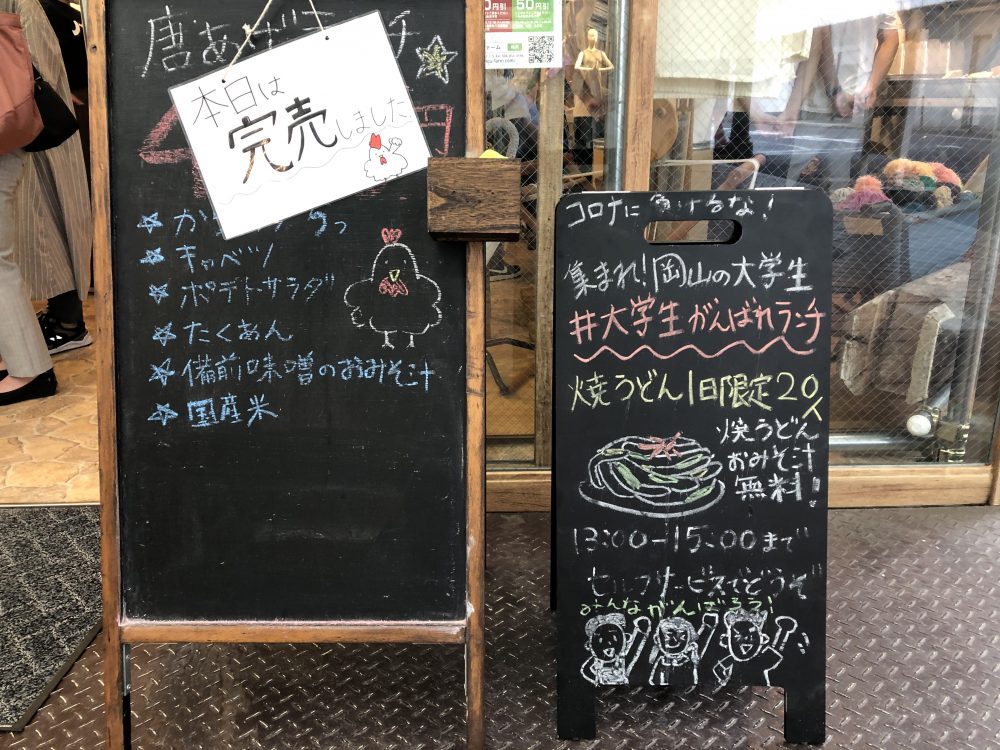 唐あげランチ
本日は
完売しました
☆キャベツ
☆ポテトサラダ
☆たくあん
☆備前味噌のおみそ汁
☆国産米
50円引
コロナに負けるな!
集まれ!岡山の大学生
#大学生がんばれランチ
焼うどん1日限定20人
焼うどん
おみそ汁
無料!
13:00-15:00まで
セルフサービスでどうぞ
みんながんばろう!